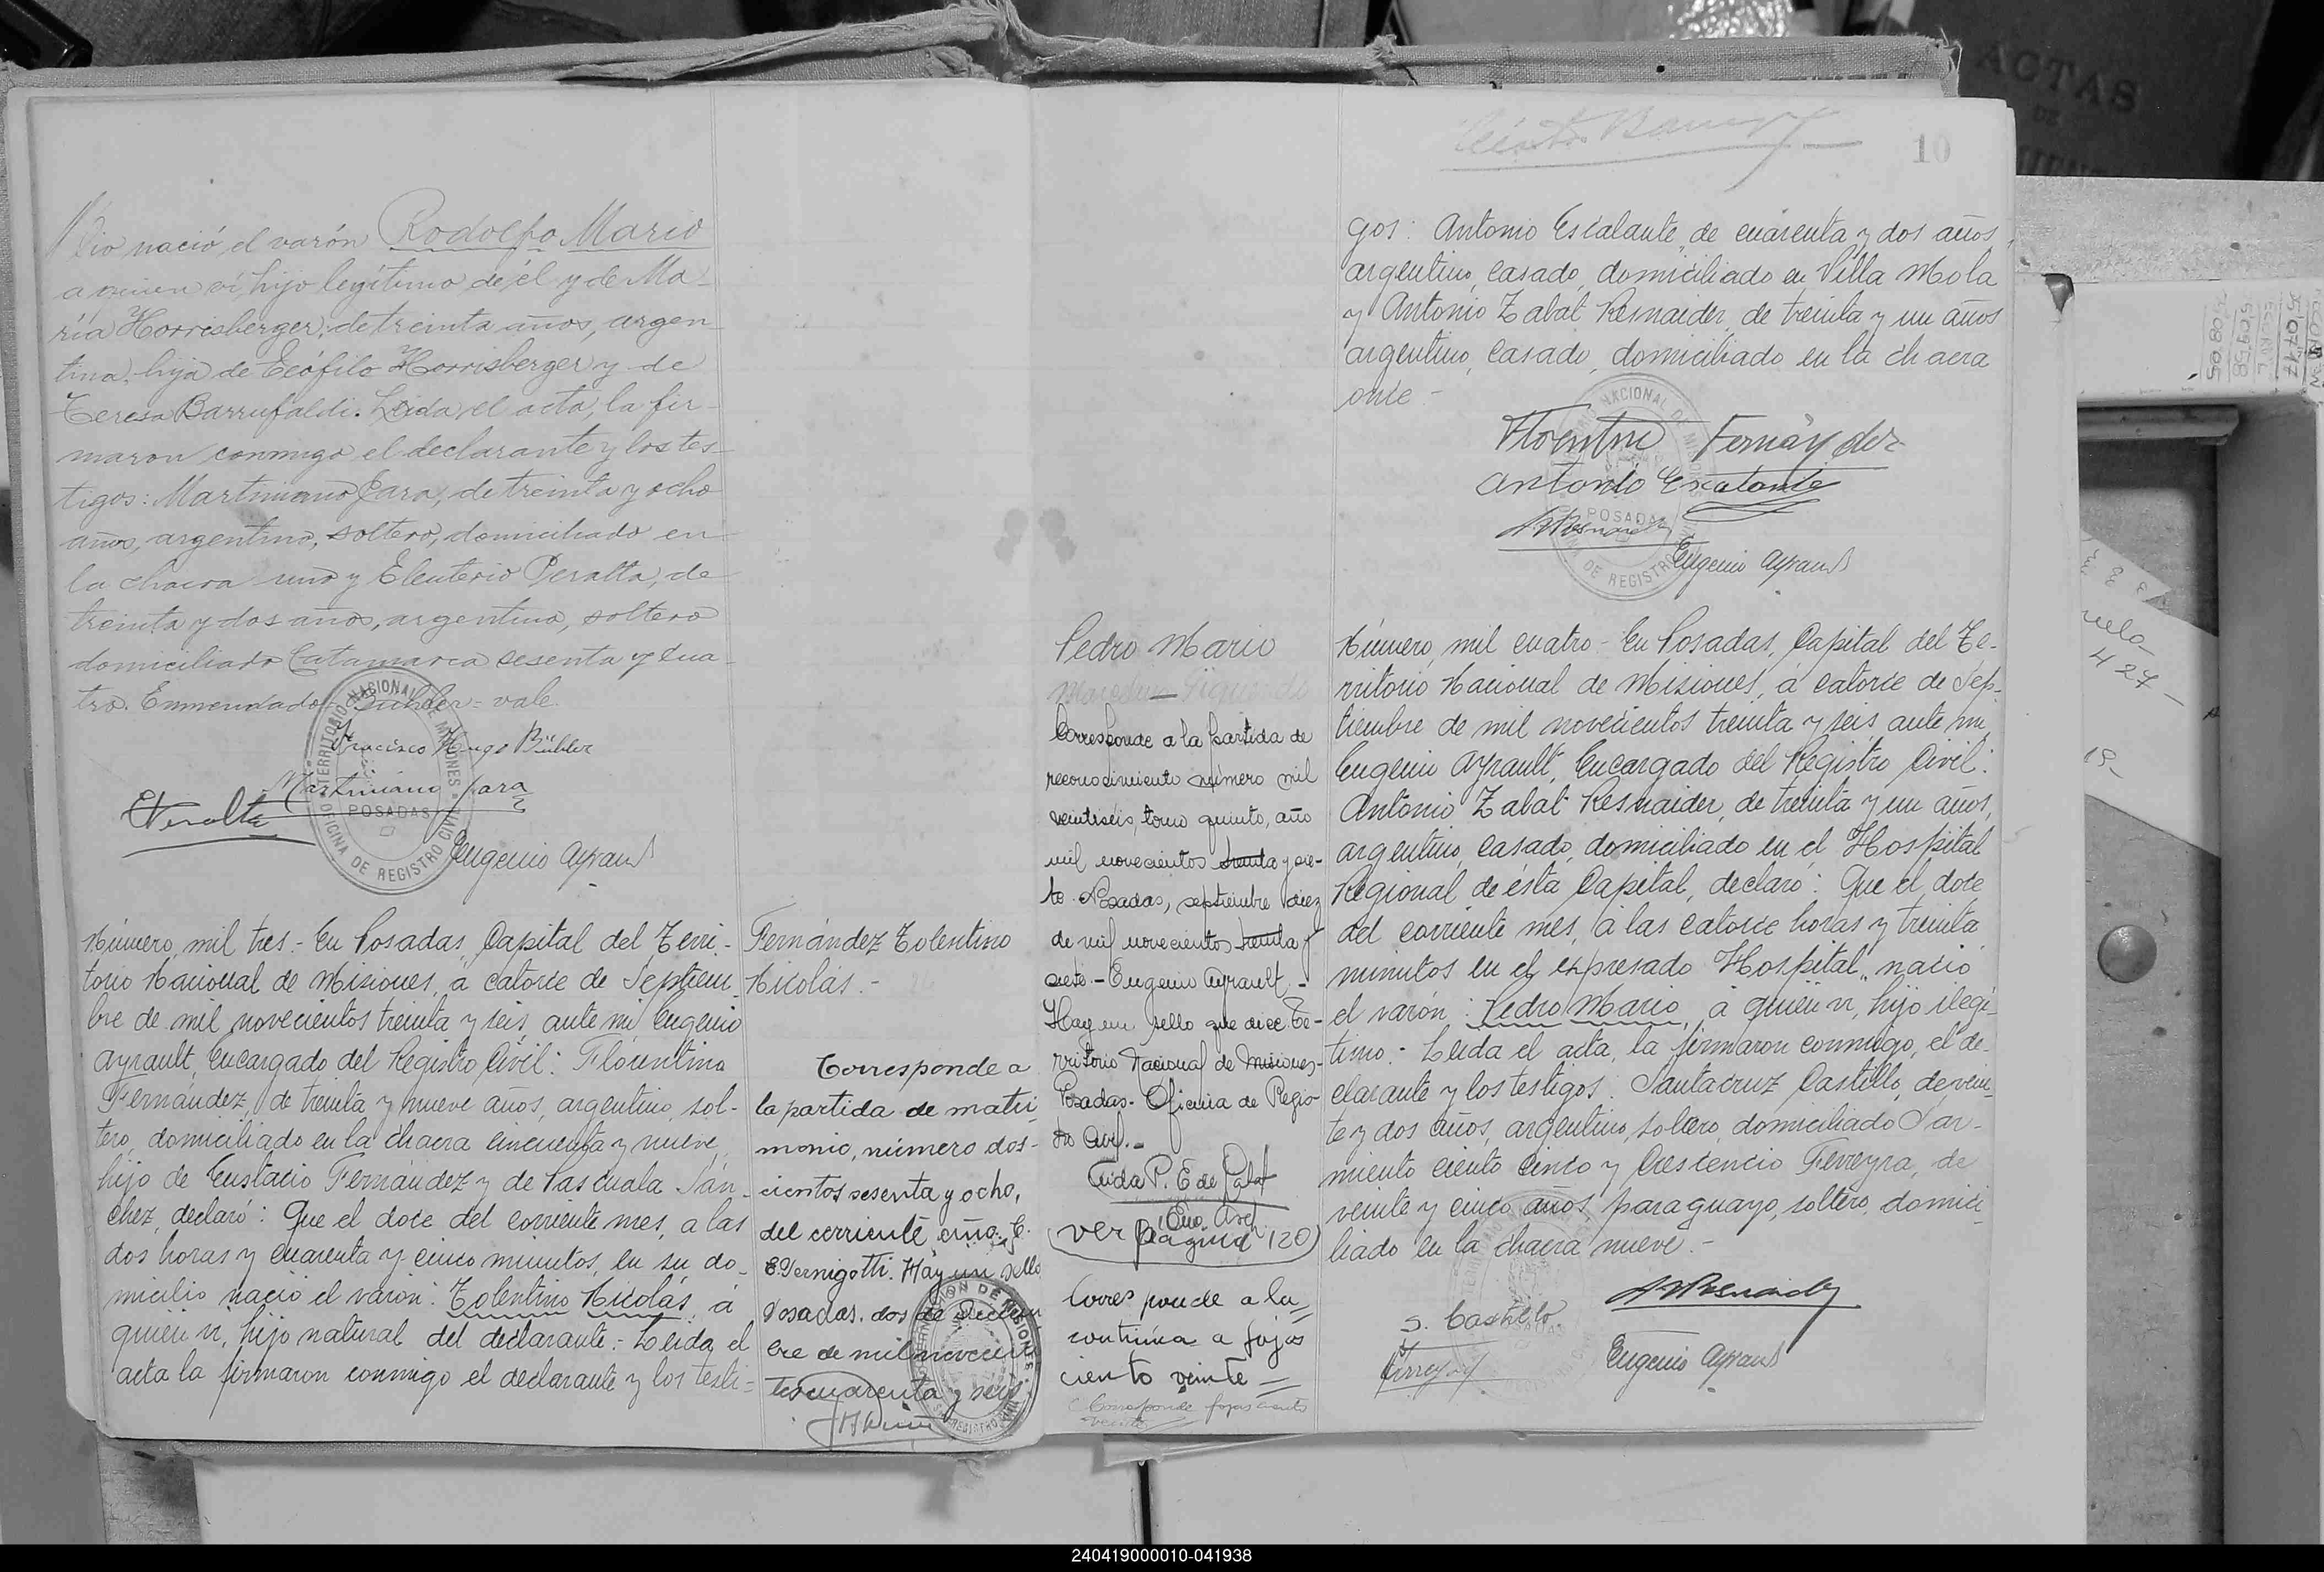 nació el varón Rodolfo Mario
a quien ví, hijo legítimo de él y de Ma-
ría Horrisberger, de treinta años, argen-
tina, hija de Teófilo Horrisberger y de
Teresa Barrufaldi. Leída el acta, la fir-
maron conmigo el declarante y los tes-
tigos: Martiniano Jara, de treinta y ocho
años, argentino, soltero, domiciliado en
la chacra uno y Eleuterio Peralta, de
treinta y dos años, argentino, soltero
domiciliado Catamarca sesenta y cua-
tro. Enmendado = Bühler = vale.
Hugo Bühler
Martiniano Jara
EPeralta
Eugenio Ayrault
TERRITORIO NACIONAL DE MISIONES
POSADAS
OFICINA DE REGISTRO CIVIL
Número mil tres.- En Posadas, Capital del Terri-
torio Nacional de Misiones, á catorce de Septiem-
bre de mil novecientos treinta y seis, ante mi Eugenio
Ayrault, Encargado del Registro Civil: Florentino
Fernández, de treinta y nueve años, argentino, sol-
tero, domiciliado en la chacra cincuenta y nueve,
hijo de Eustacio Fernández y de Pascuala Sán-
chez, declaró: Que el doce del corriente mes, a las
dos horas y cuarenta y cinco minutos, en su do-
micilio nació el varón: Tolentino Nicolás, á
quién vi, hijo natural del declarante.- Leída el
acta la firmaron conmigo el declarante y los testi-
Fernández Tolentino
Nicolás.-
Corresponde a
la partida de matri-
monio, número dos-
cientos sesenta y ocho,
del corriente año. E.
E. Pernigotti. Hay un sello
Posadas, dos de Diciem-
bre de mil novecien-
tos cuarenta y seis.
10
gos: Antonio Escalante, de cuarenta y dos años,
argentino, casado, domiciliado en Villa Mola
y Antonio Zabat Resnaider, de treinta y un años
argentino, casado, domiciliado en la chacra
once.-
Florentino Fernández
Antonio Escalante
Eugenio Ayrault
POSADAS
Pedro Mario
Corresponde a la partida de
reconocimiento número mil
veintiseis, tomo quinto, año
mil novecientos treinta y sie-
te. Posadas, septiembre diez
de mil novecientos treinta y
siete.- Eugenio Ayrault.-
Hay un sello que dice Te-
rritorio Nacional de Misiones-
Posadas- Oficina de Regis-
tro Civil.-
ver página 120
Corresponde a la
continúa a fojas
ciento veinte
Corresponde fojas ciento
veinte
Número mil cuatro.- En Posadas, Capital del Te-
rritorio Nacional de Misiones, á catorce de Sep-
tiembre de mil novecientos treinta y seis, ante mi,
Eugenio Ayrault, Encargado del Registro Civil:
Antonio Zabat Resnaider, de treinta y un años,
argentino, casado, domiciliado en el Hospital
Regional de ésta Capital, declaró: Que el doce
del corriente mes, á las catorce horas y treinta
minutos en el expresado Hospital, nació
el varón: Pedro Mario, á quién vi, hijo ilegí-
timo.- Leída el acta, la firmaron conmigo, el de-
clarante y los testigos: Santacruz Castillo, de vein-
te y dos años, argentino, soltero, domiciliado Sar-
miento ciento cinco y Crescencio Ferreyra, de
veinte y cinco años, paraguayo, soltero, domici-
liado en la chacra nueve.-
S. Castillo
Eugenio Ayrault
ACTAS
240419000010-041938